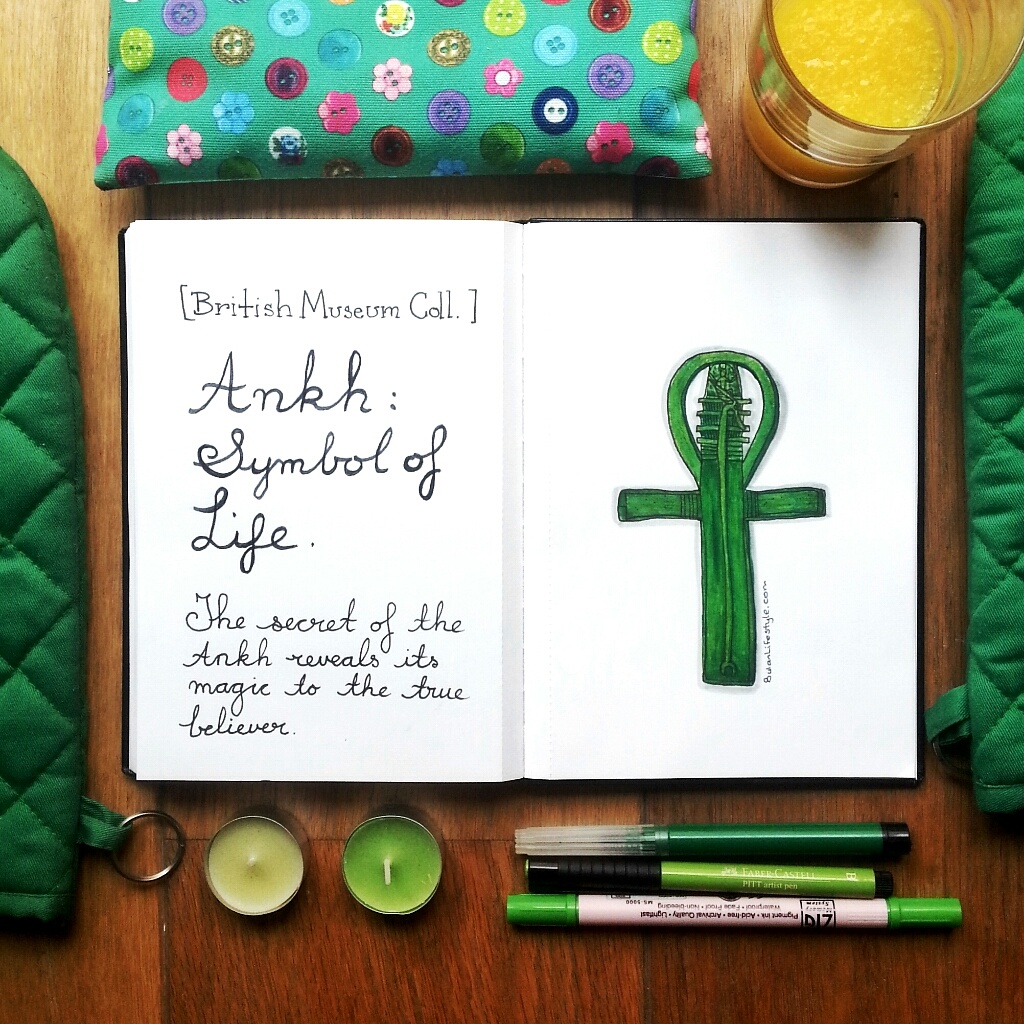 [British Museum Coll.]
Ankh:
Symbol of
Life.
The secret of the
Ankh reveals its
magic to the true
believer.
FABER-CASTELL
PITT artist pen B
ZIG
Memory
System
Pigment Ink • Acid-free • Archival Quality • Lightfast
Waterproof • Fade Proof • Non-bleeding
MS-5000